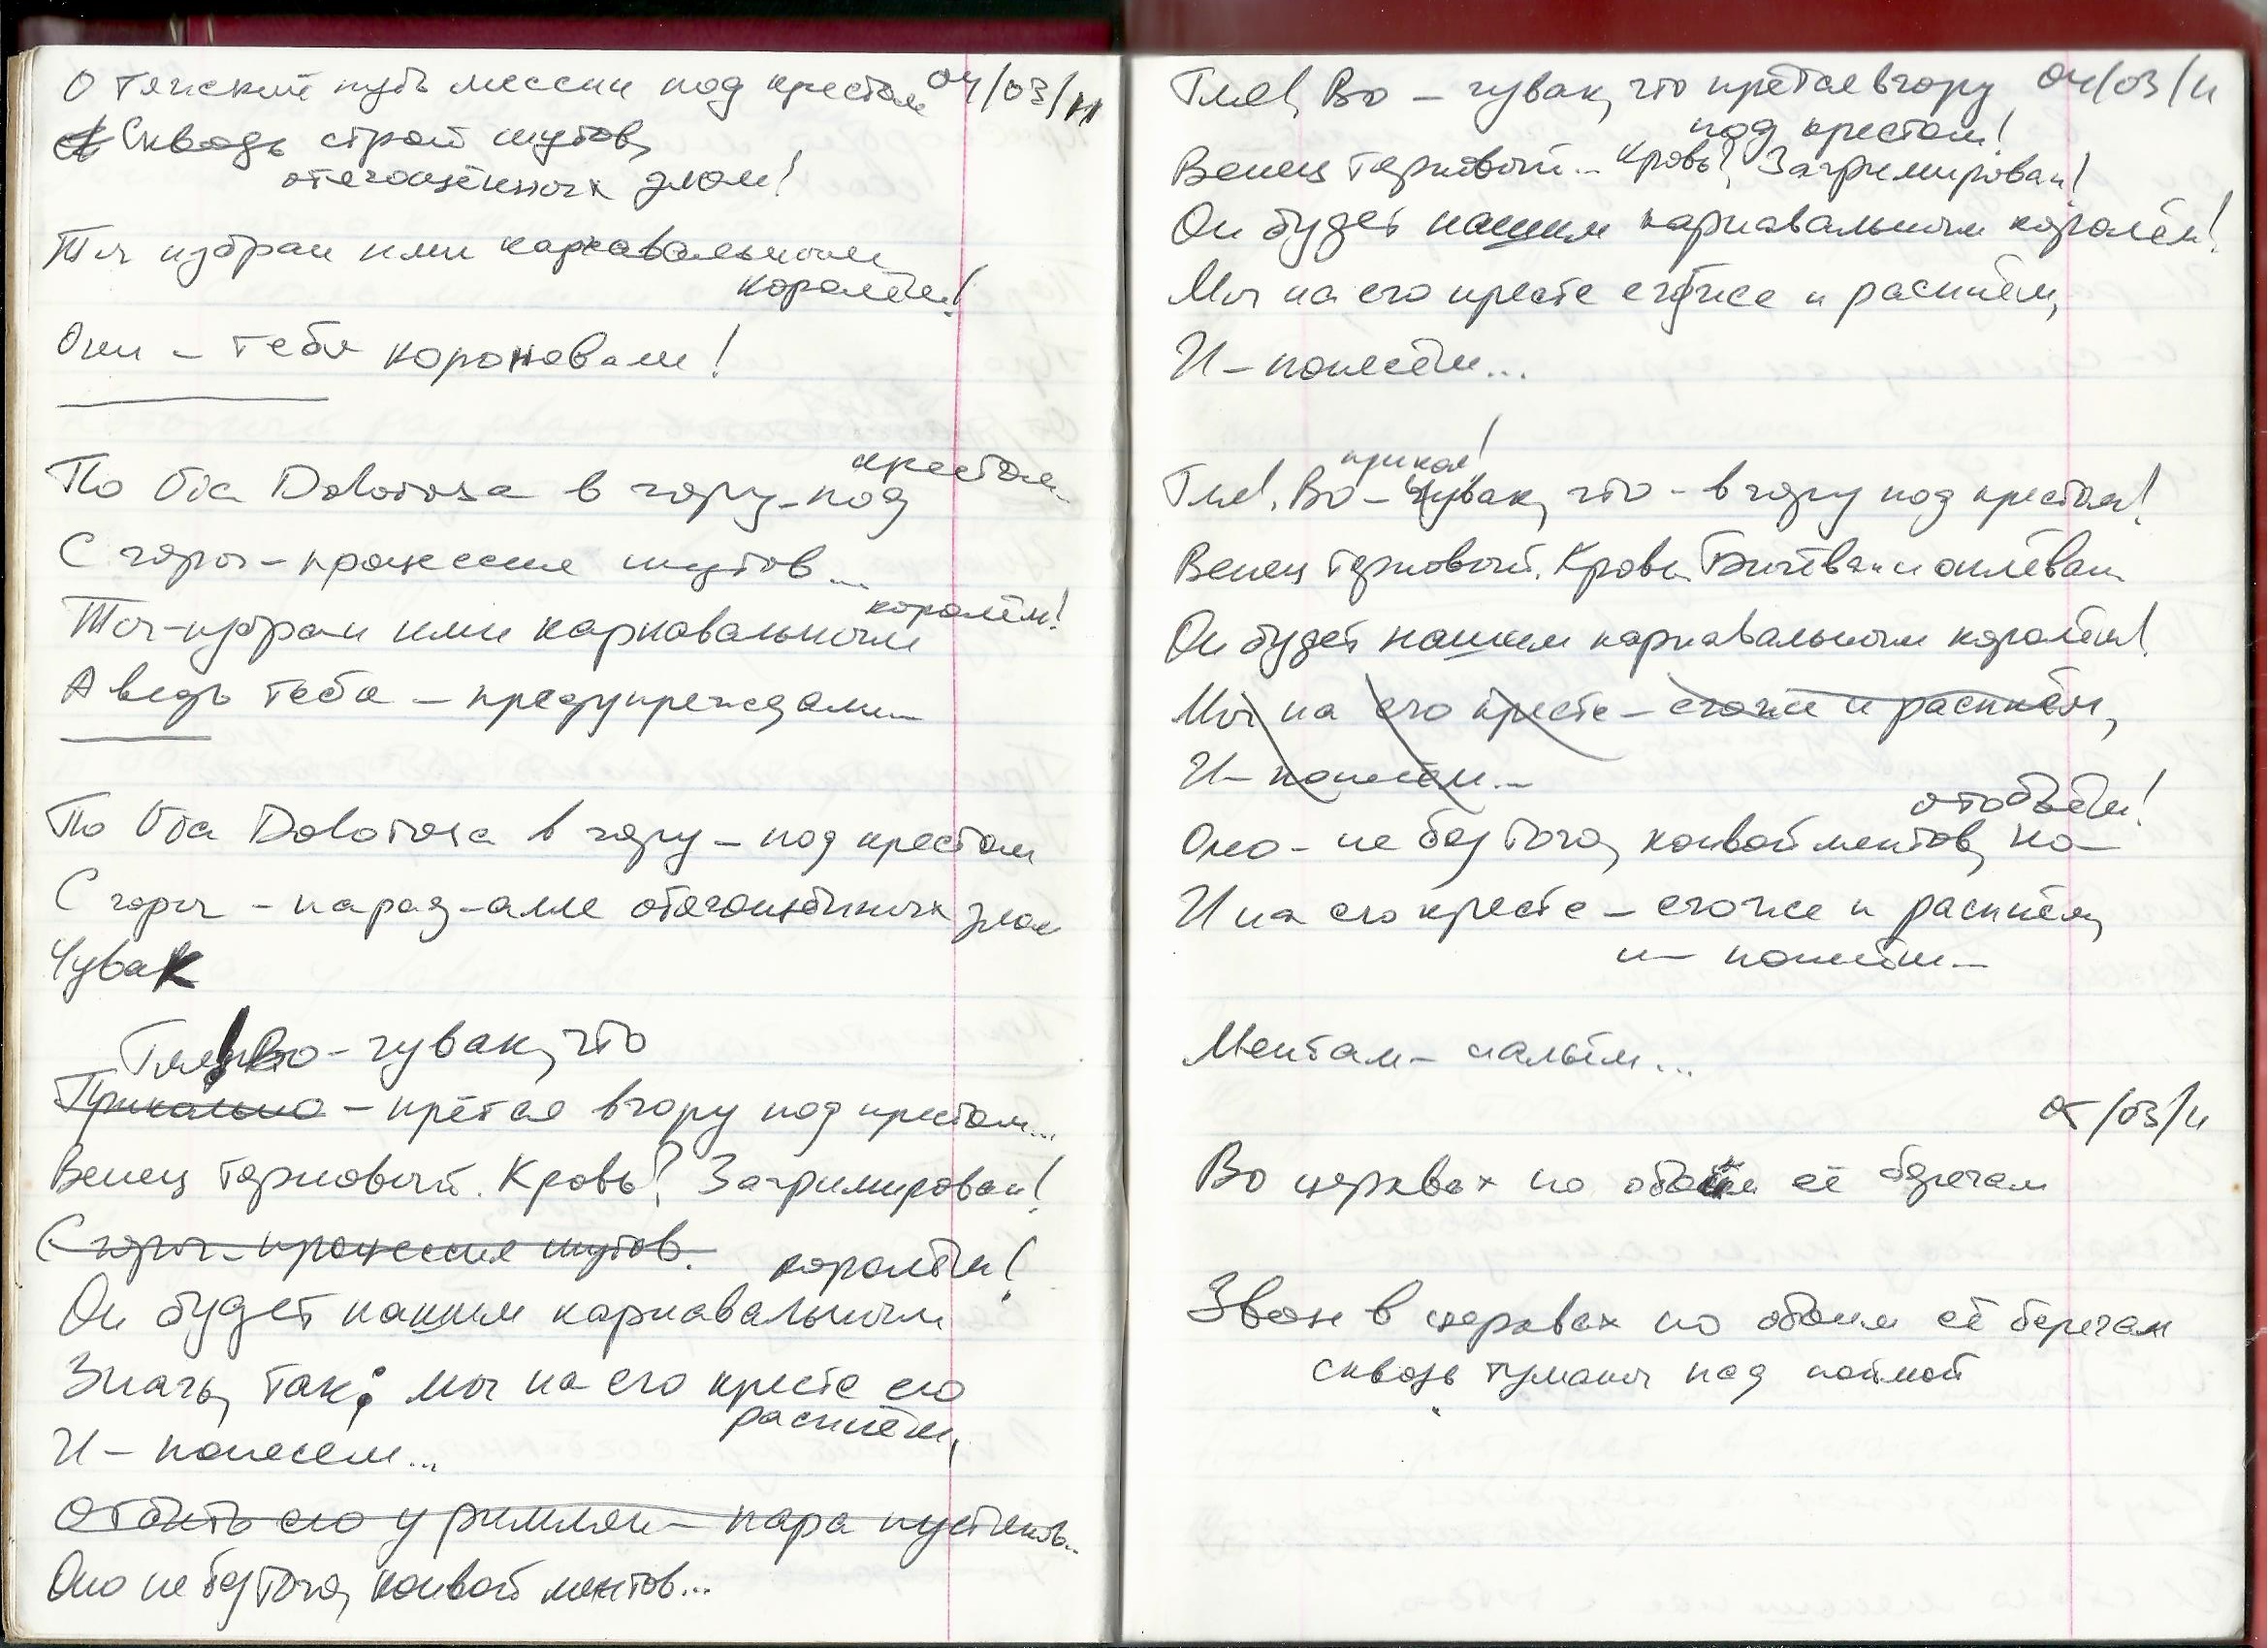 О тяжкий путь мессии под крестом 04/03/11
Сквозь строй шутов,
отягощённых злом!
Ты избран ими карнавальным
королём!
Они – тебя короновали!
По Via Dolorosa в гору – под крестом
С горы – процессия шутов...
Ты – избран ими карнавальным королём!
А ведь тебя – предупреждали...
По Via Dolorosa в гору – под крестом
С горы – парад-алле отягощённых злом
Чувак
Гля! Во – чувак, что
Прикольно – прётся в гору под крестом...
Венец терновый. Кровь? Загримирован!
С горы – процессия шутов.
Он будет нашим карнавальным королём!
Значь, так: мы на его кресте его
распнём,
И – понесем...
Отбить его у римлян – пара пустяков...
Оно не без того, конвой ментов...
Гля!, Во – чувак, что прётся в гору 04/03/11
под крестом!
Венец терновый... Кровь? Загримирован!
Он будет нашим карнавальным королём!
Мы на его кресте его же и распнём,
И – понесём...
прикол!
Гля!, Во – чувак, что – в гору под крестом!
Венец терновый. Кровь. и оплёван
Он будет нашим карнавальным королём!
Мы на его кресте – его же и распнём,
И – понесём...
отобьём!
Оно – не без того, конвой ментов, но –
И на его кресте – его же и распнём,
и – понесём...
Ментам – нальём...
05/03/11
Во церквах по обоим её берегам
Звон в церквах по обоим её берегам
сквозь туманы над поймой